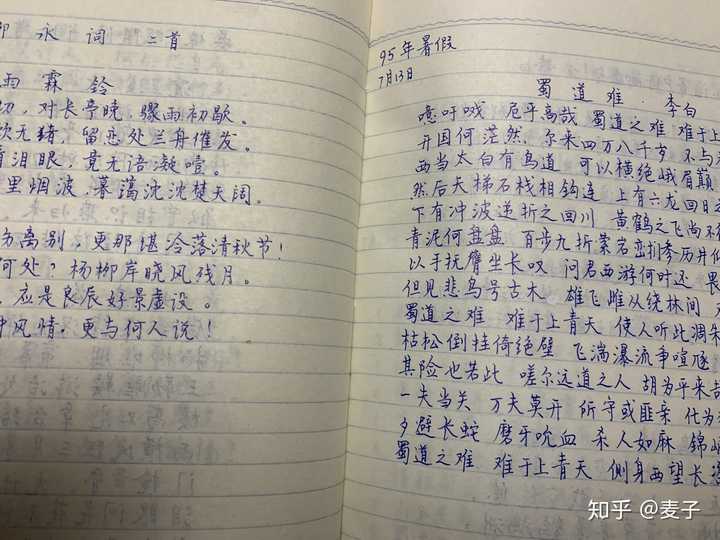 永词 二首
雨霖铃
切,对长亭晚,骤雨初歇。
饮无绪,留恋处兰舟催发。
看泪眼,竟无语凝噎。
里烟波,暮蔼沈沈楚天阔。
伤离别,更那堪冷落清秋节!
何处?杨柳岸晓风残月。
,应是良辰好景虚设。
种风情,更与何人说!
95年暑假
7月13日
蜀道难 . 李白
噫吁哦 危乎高哉 蜀道之难 难于上
开国何茫然,尔来四万八千岁 不与
西当太白有鸟道 可以横绝峨眉巅
然后天梯石栈相钩连 上有六龙回日
下有冲波逆折之回川 黄鹤之飞尚不
青泥何盘盘 百步九折萦岩峦扪参历井
以手抚膺坐长叹 问君西游何时还 畏
但见悲鸟号古木 雄飞雌从绕林间
蜀道之难 难于上青天 使人听此凋朱
枯松倒挂倚绝壁 飞湍瀑流争喧豗
其险也若此 嗟尔远道之人 胡为乎来哉
一夫当关 万夫莫开 所守或匪亲 化为
夕避长蛇 磨牙吮血 杀人如麻 锦
蜀道之难 难于上青天 侧身西望长
知乎 @麦子